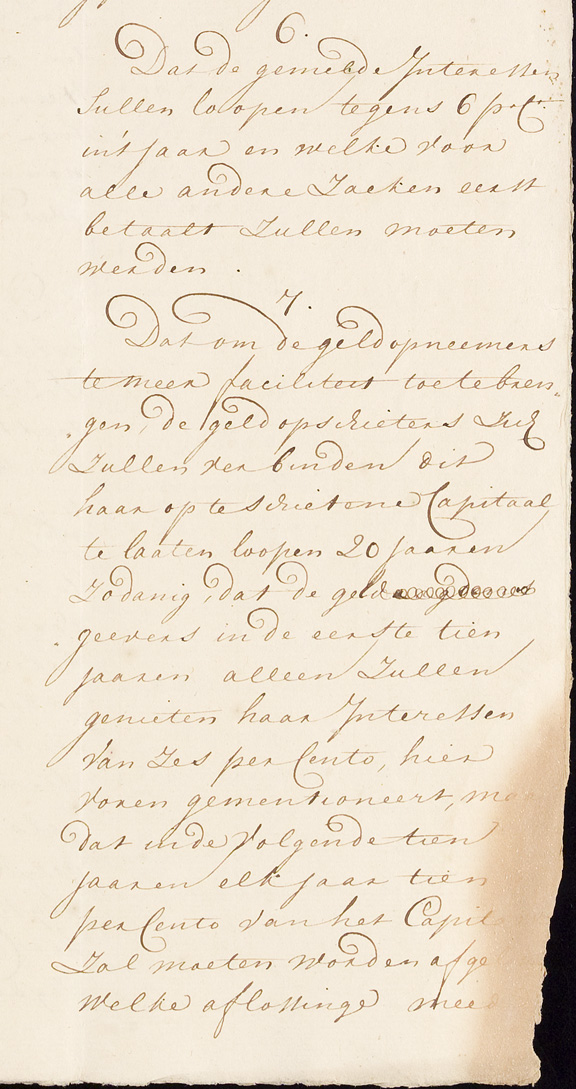 6.
Dat de gemelde Interessen
Sullen loopen tegens 6 p.r C.to
in't jaar en welke voor
alle andere Zaeken eerst
betaalt Zullen moeten
werden.
7.
Dat om de geldopneemers
te meer faciliteit toe te bren„
gen, de geld opschieters Zich
Zullen verbinden dit
haar op te schietene Capitaal
te laaten loopen 20 jaaren
Zodanig, dat de geld
geevers in de eerste tien
jaaren alleen Zullen
genieten haar Interessen
Van Zes per Cento, hier
voren gementioneert, ma
dat in de Volgende tien
jaaren elk jaar tien
per Cento van het Capit
Zal moeten worden afge
welke aflossinge meed